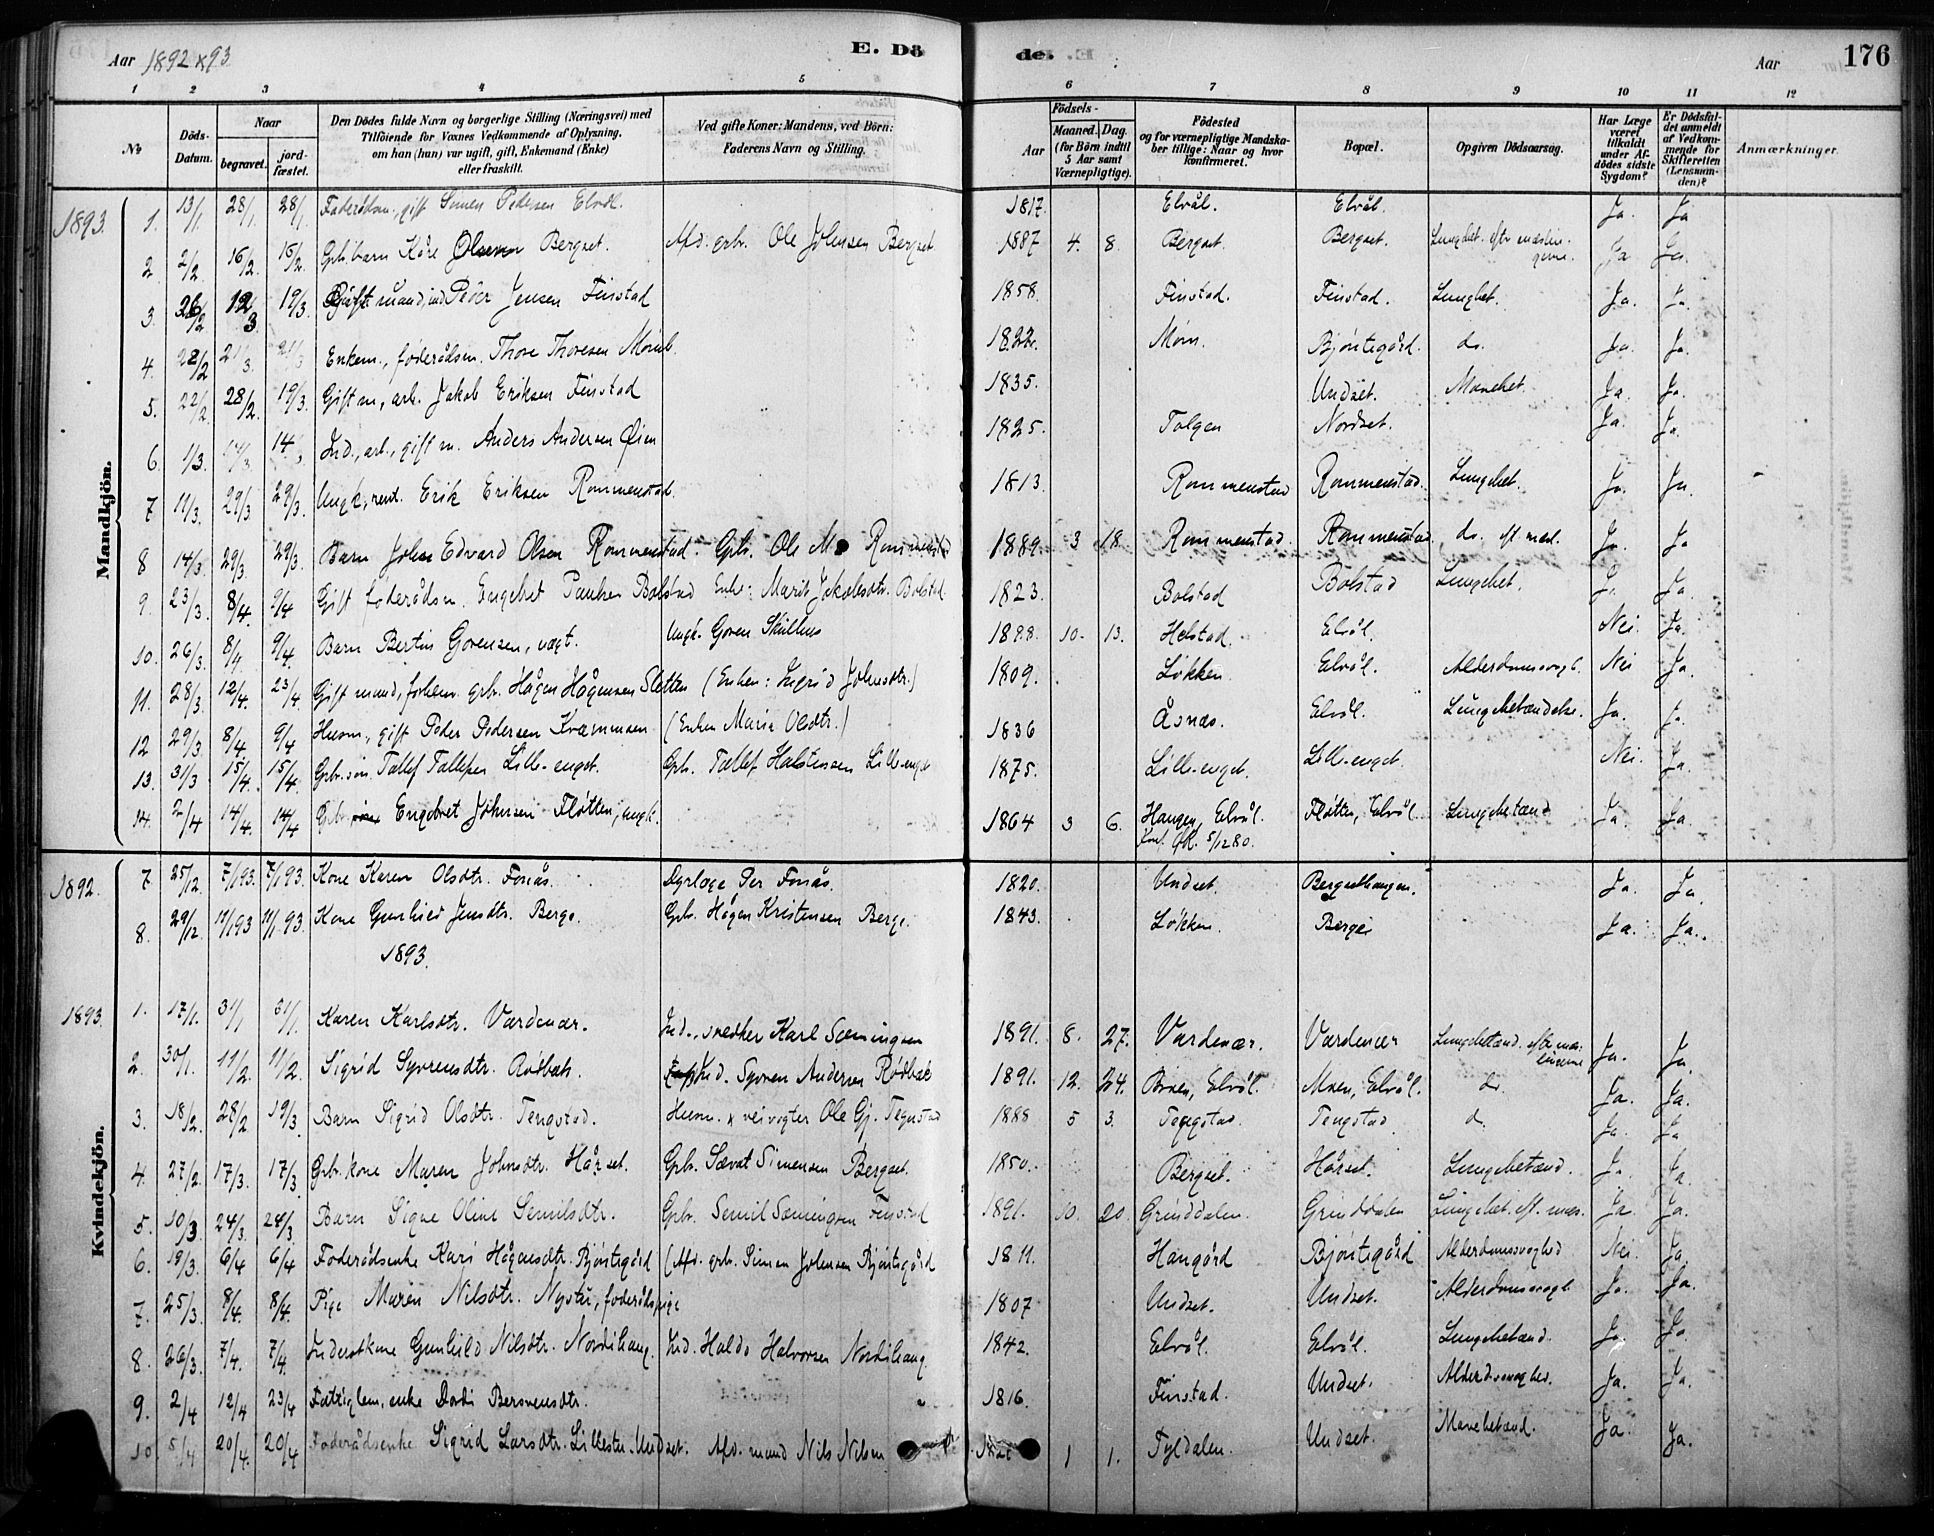 Aar 1892 & 93
E. Dö
de.
Aar
176
1 2 3 4 5 6 7 8 9 10 11 12
No
Döds-Datum.
Naar
begravet.
jord-fæstet.
Den Dödes fulde Navn og borgerlige Stilling (Næringsvei) med
Tilföiende for Voxnes Vedkommende af Oplysning,
om han (hun) var ugift, gift, Enkemand (Enke)
eller fraskilt.
Ved gifte Koner: Mandens, ved Börn:
Faderens Navn og Stilling.
Födsels-
Aar
Maaned. Dag.
(for Börn indtil
5 Aar samt
Værnepligtige).
Födested
og for værnepligtige Mandska-
ber tillige: Naar og hvor
konfirmeret.
Bopæl.
Opgiven Dödsaarsag.
Har Læge
været
tilkaldt
under Af-
dödes sidste
Sygdom?
Er Dödsfal-
det anmeldt
af Vedkom-
mende for
Skifteretten
(Lensman-
den)?
Anmærkninger.
Mandkjön.
1893. 1. 13/1 28/1. 28/1. Foderådsm., gift Simen Pedersen Elvål. 1817. Elvål. Elvål. Ja. Ja
2 2/2 16/2. 16/2. Gbr. barn Kåre Olsen Bergset. Afd. gbr. Ole Johnsen Bergset 1887 4. 8. Bergset. Bergset. Lungebet. eft. mæslin- Ja Ja.
3. 26/2 12/3 19/3. Gift mand, ind. Peder Jensen Finstad 1858. Finstad. Finstad. Lungebet. Ja. Ja.
4. 28/2 21/3. 21/3 Enkem., foderådsm. Thore Thoresen 1822. Morn. Bjöntegård. do. Ja. Ja.
5. 22/2. 28/2. 19/3. Gift m., arb. Jakob Eriksen Finstad 1835. Undset. Mavebet. Ja Ja.
6. 1/3. 14/3 14 Ind., arb., gift m. Anders Andersen Öien 1825. Tolgen Nordset. Ja. Ja.
7 11/3. 29/3 29/3. Ungk., Erik Eriksen Rommenstad. 1813. Rommenstad Rommenstad. Lungebet. Ja. Ja.
8 14/3. 29/3. 29/3. Barn Johan Edvard Olsen Rommenstad. Gbr. Ole M. Rommenstad 1889. 3 18. Rommenstad. Rommenstad do. eft. mæsl. Ja. Ja
9. 23/3. 8/4. 9/4 Gift foderådsm. Engebret Paulsen Bolstad Enke: Marit Jakobsdtr. Bolstad. 1823. Bolstad Bolstad Lungebet. Ja. Ja.
10. 26/3. 8/4 9/4. Barn Bertin Gorensen, uægt. Ungk. Goren 1888. 10. 13. Helstad. Elvål. Nei. Ja.
11. 28/3. 12/4. 23/4. Gift mand, gbr. Hågen Hågensen Sletten (Enken: Ingrid Johnsdtr.) 1809. Løkken. Elvål. Alderdomssvagh. Nei Ja.
12 29/3 8/4 9/4 Husm., gift Peder Pedersen Kværnmoen (Enken Maria Olsdtr.) 1836 Åsnæs. Elvål. Lungebetændelse. Ja. Ja.
13. 31/3 15/4. 15/4. Gbr. sön Tollef Tollefsen Lille-enget. Gbr. Tollef Halstensen Lille-enget 1875. Lille-enget. Lille-enget. Nei. Ja.
14. 2/4 14/4. 14/4 Gbr. Engebret Johnsen Fløtten, ungk. 1864 3 6. Haugen, Elvål. Fløtten, Elvål. Lungebetænd Ja Ja.
Konf. 5/12 80.
Kvindekjön.
1892. 7. 25/12. 7/1 93. 7/1 93. Kone Karen Olsdtr. Fonås. Dyrlæge Per Fonås. 1820. Undset. Bergsethaugen. Ja. Ja.
8. 29/12. 11/1 93 11/1 93. Kone Gunhild Jensdtr. Berge. Gbr. Hågen Kristensen Berge. 1843. Løkken. Berge Ja. Ja.
1893.
1893. 1. 17/1. 31/1 31/1. Karen Karlsdtr. Vardenær. Ind., snedker Karl Sæmingsen 1891. 8. 27. Vardenær. Vardenær Lungebetænd. efter mæs- Ja. Ja.
2. 30/1. 11/2. 11/2. Sigrid Syversdtr. Rödbæk. Ind. Syver Andersen Rödbæk 1891. 12. 24. Moen, Elvål. Moen, Elvål. do. Ja. Ja.
3. 18/2. 28/2. 19/3. Barn Sigrid Olsdtr. Tengstad. Husm. & veivogter Ole Gj. Tegnstad 1888 5 3. Tengstad Tengstad d. Ja. Ja
4. 27/2. 17/3. 17/3. Gbr. kone Maren Johnsdtr. Hårset. Gbr. Sævat Simensen Bergset. 1850. Bergset. Hårset. Lungebetænd. Ja. Ja.
5. 10/3 24/3. 24/3. Barn Signe Oline Semilsdtr. Gbr. Semil Sæmingsen Finstad 1891. 10. 20. Grinddalen. Grinddalen Lungebet. eft. mæs. Ja. Ja.
6. 19/3. 6/4 6/4 Foderådsenke Kari Hågensdtr. Bjöntegård (Afd. gbr. Simen Johnsen Bjöntegård 1811. Haugård Bjöntegård Alderdomssvaghed Nei. Ja.
7. 25/3. 8/4. 8/4. Pige Maren Nilsdtr. Nystu, foderådspige 1807 Undset. Undset. Alderdomssvagh. Ja. Ja.
8. 26/3. 7/4. 7/4. Inderstkone Gunhild Nilsdtr. Nordihaug. Ind. Haldo Halvorsen Nordihaug. 1842. Elvål. Elvål. Lungebetænd. Ja. Ja.
9. 2/4 12/4 23/4 Fattiglem, enke Dordi Bersvensdtr. 1816. Finstad. Undset. Alderd.svaghed. Ja. Ja.
10. 5/4 20/4. 20/4 Foderådsenke Sigrid Larsdtr. Lillestu-Undset. Afd. mand Nils Nilsen 1 1. Tyldalen. Undset. Mavebetænd. Ja. Ja.